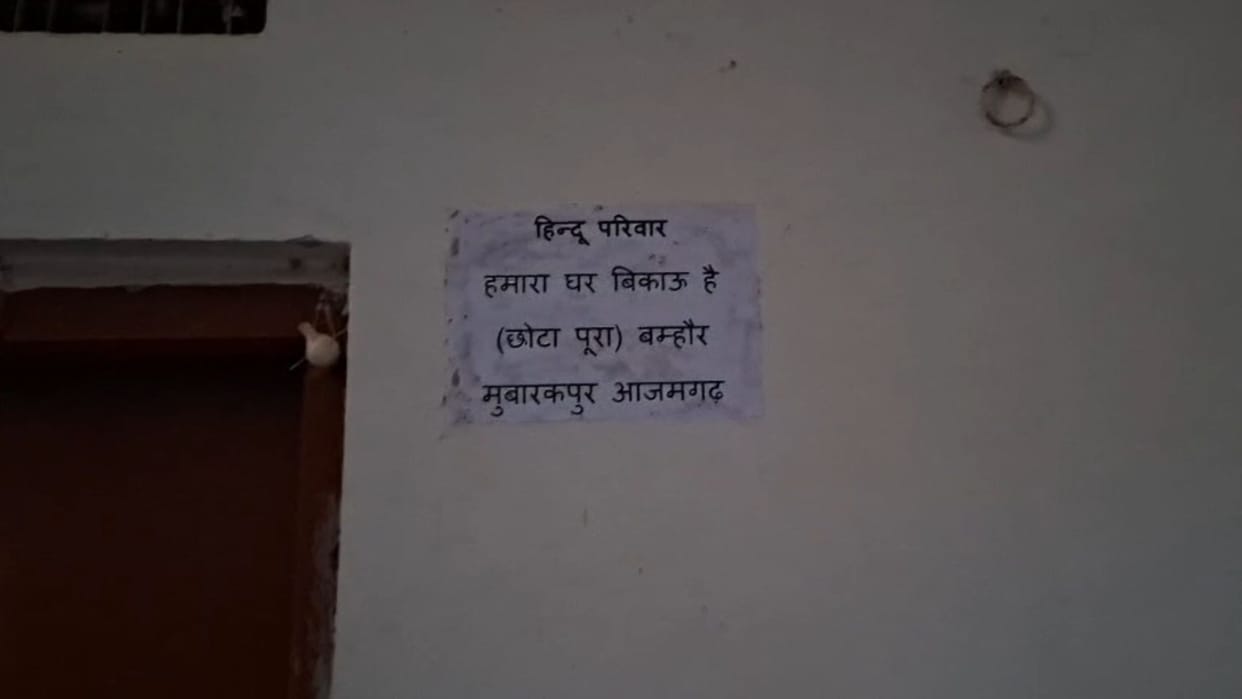 हिन्दू परिवार
हमारा घर बिकाऊ है
(छोटा पूरा) बम्हौर
मुबारकपुर आजमगढ़